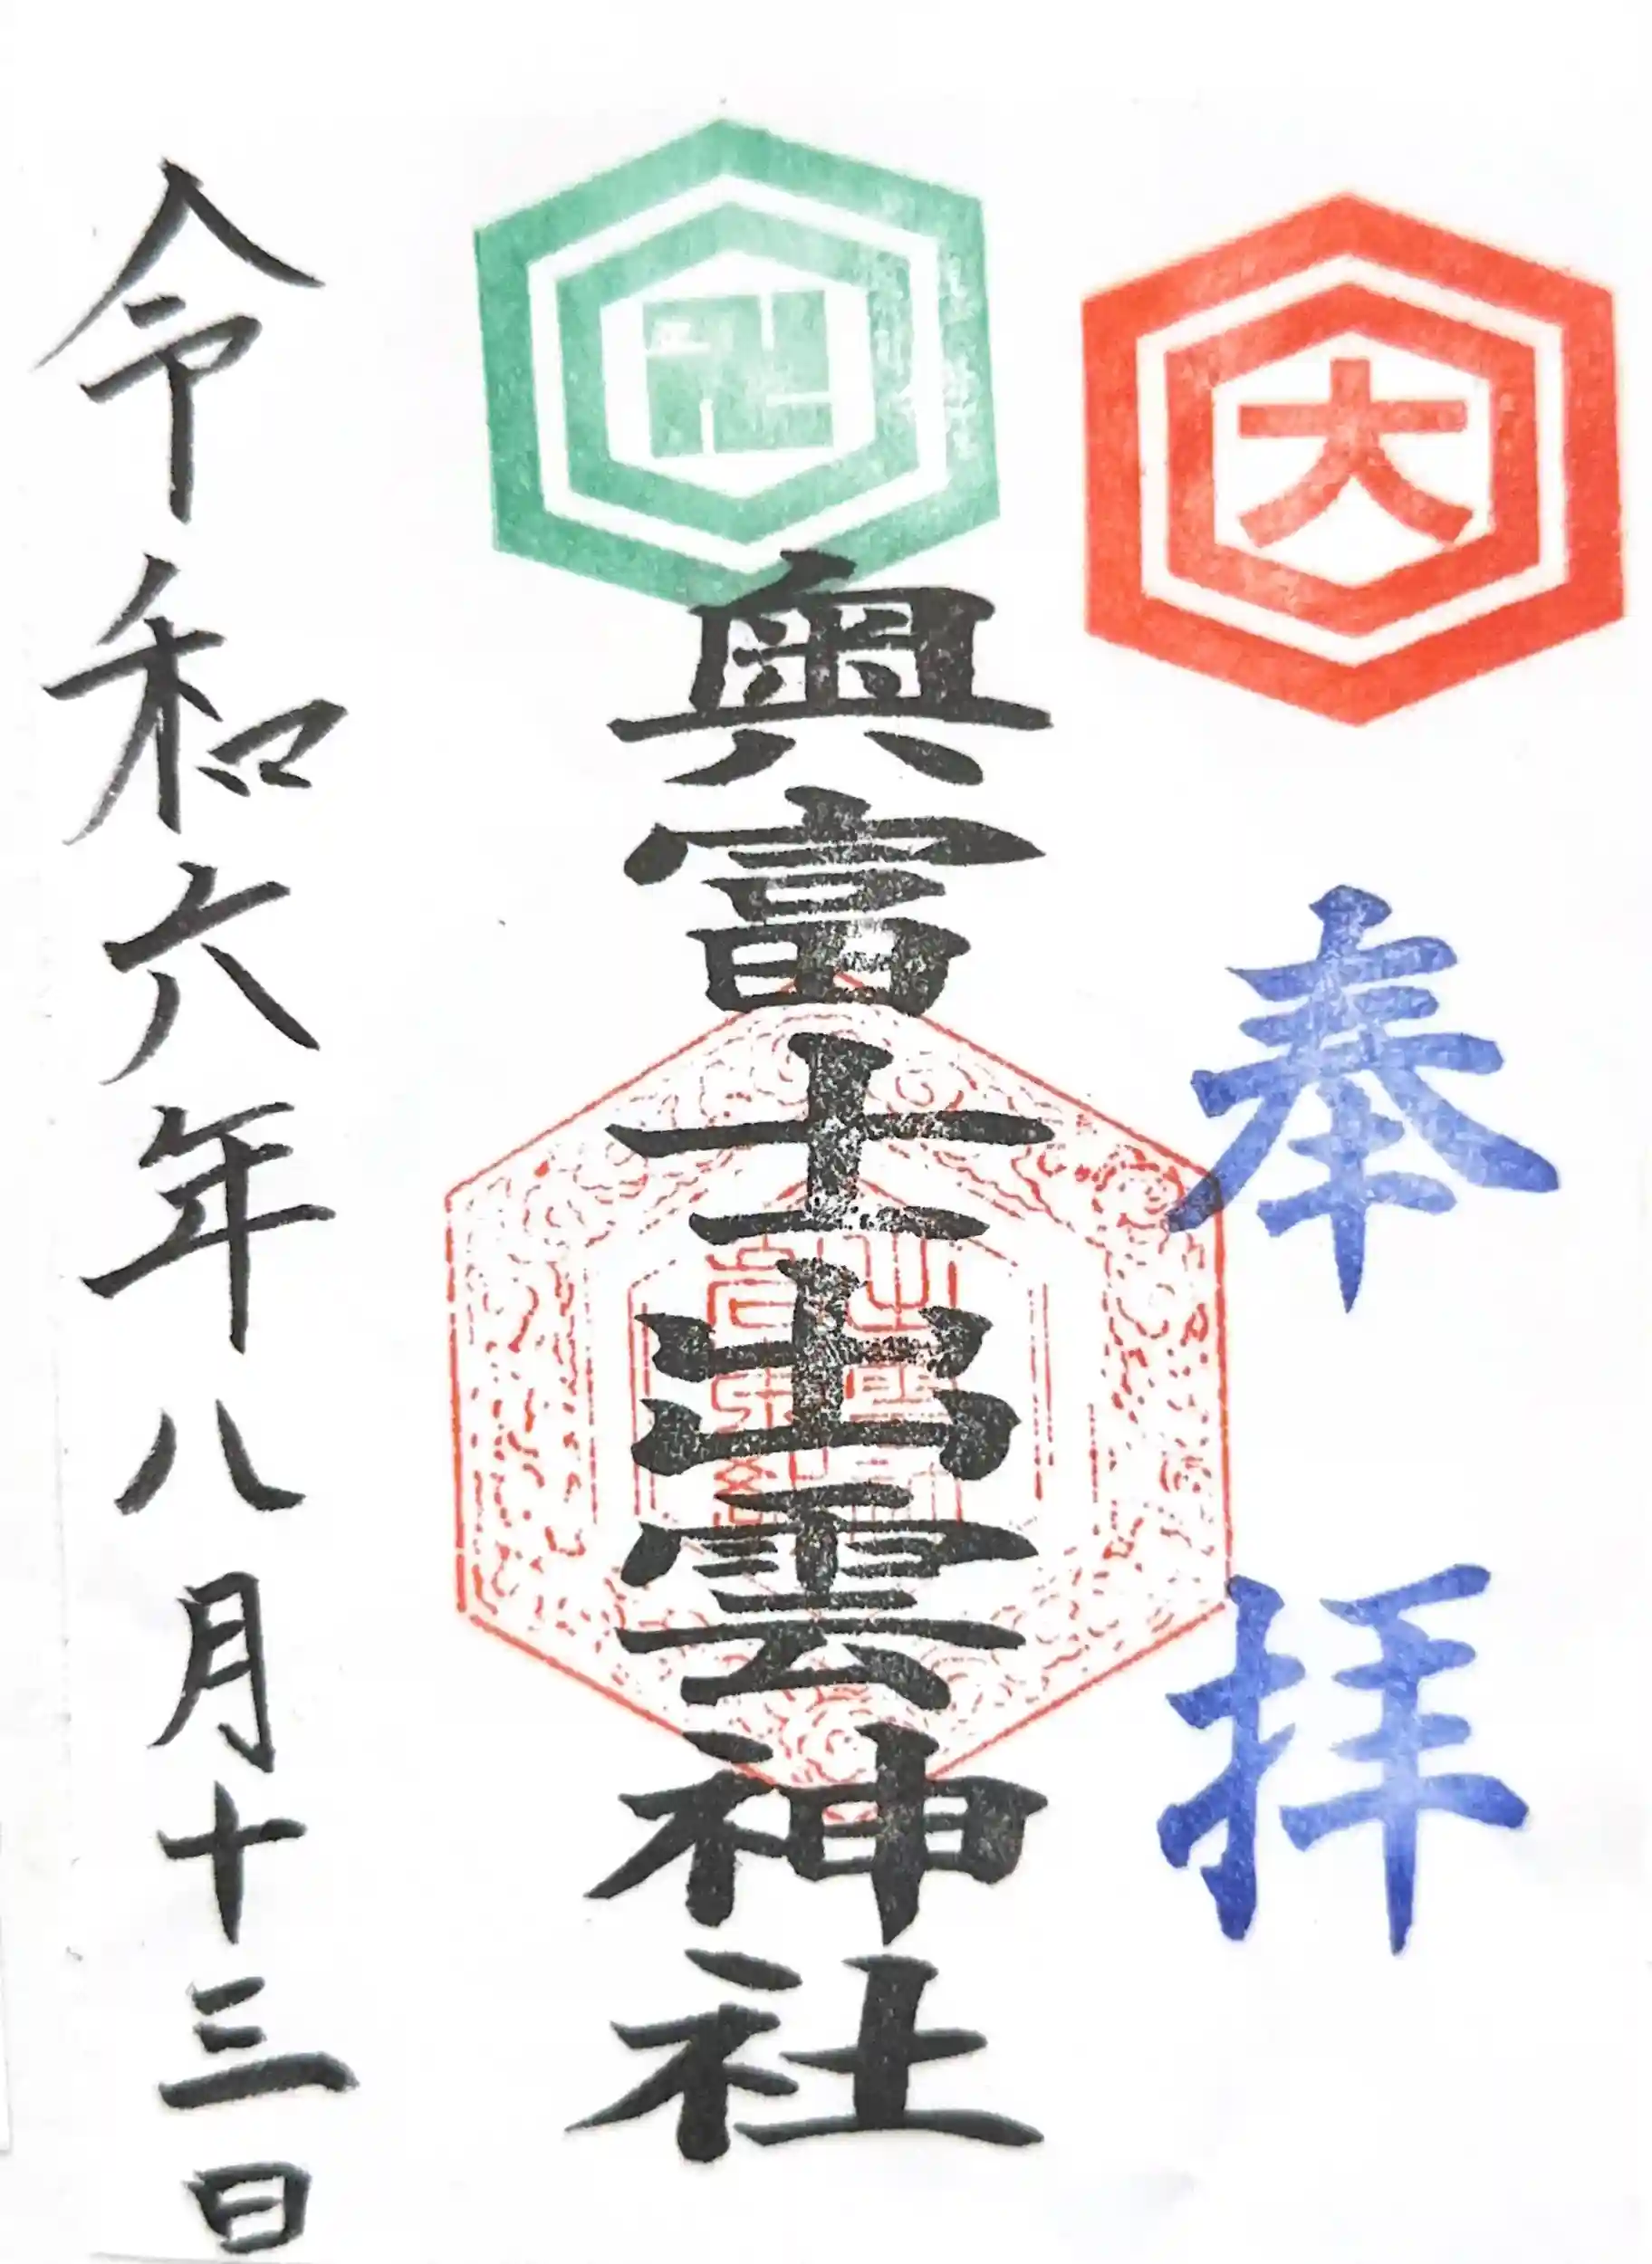 大
奉拝
奥富士出雲神社
令和六年八月十三日